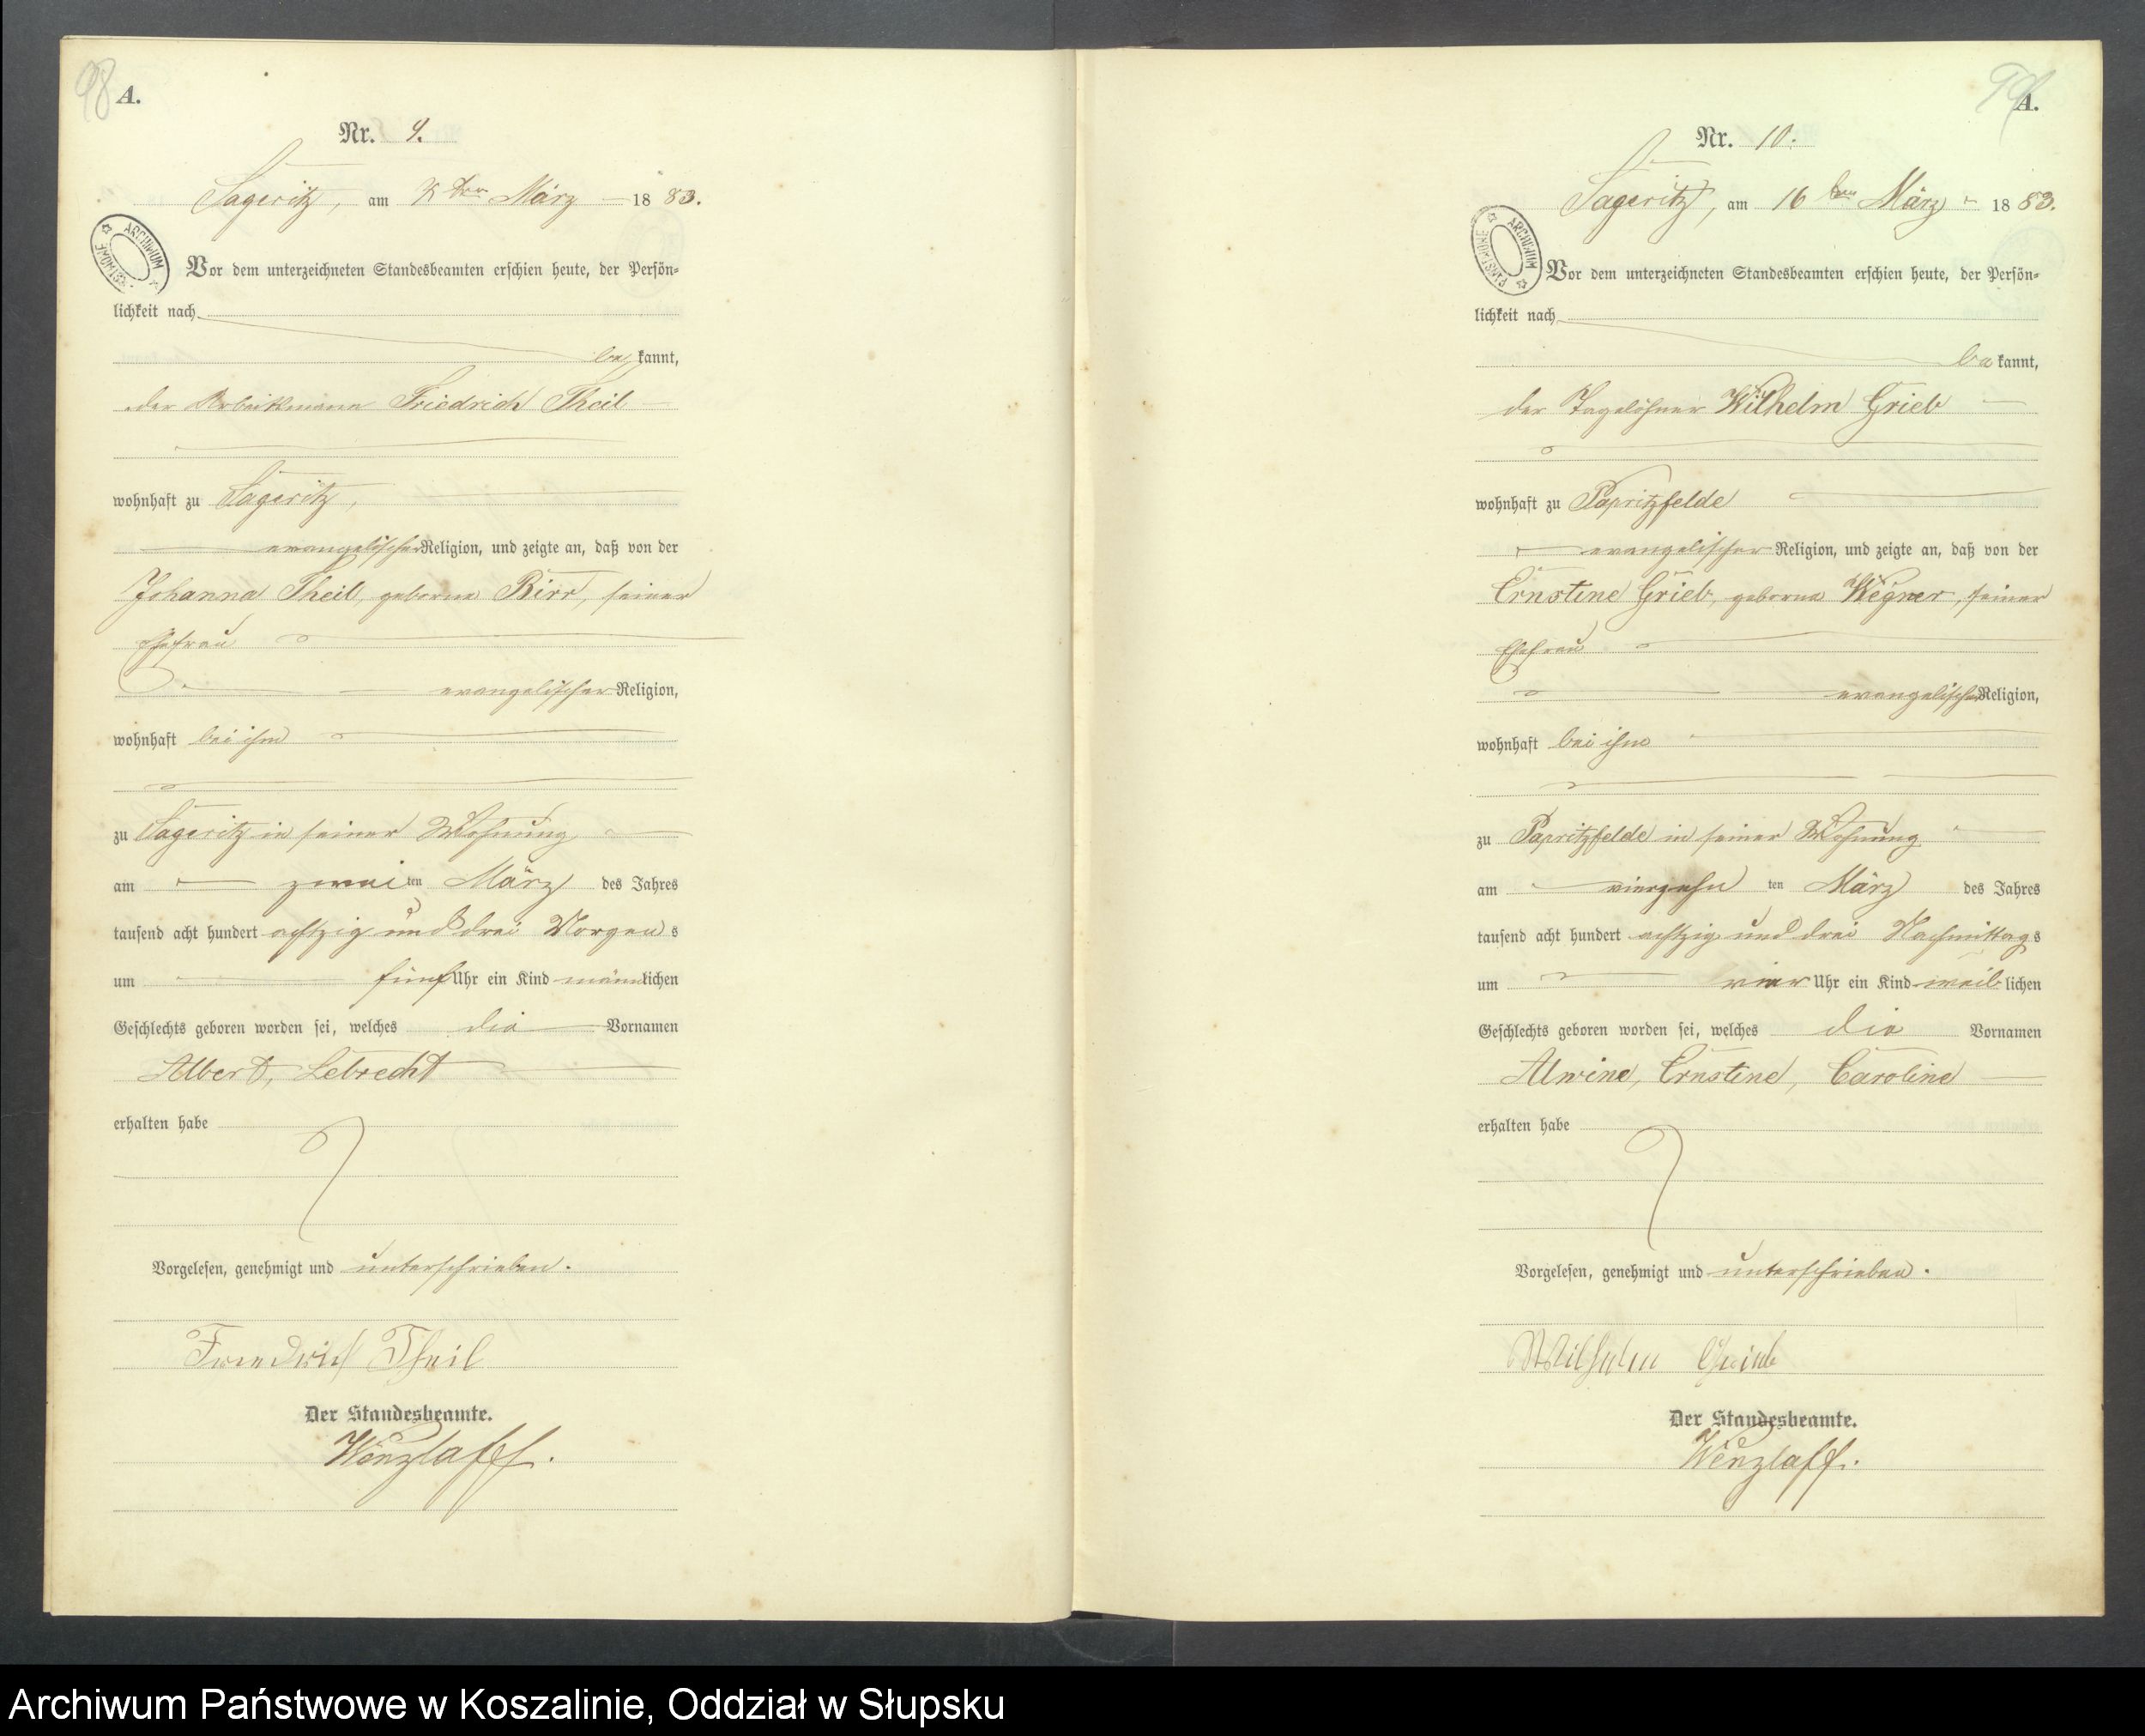 98
A.
Nr. 9.
Sageritz, am ten März 1883.
ARCHIWUM PAŃSTWOWE
Vor dem unterzeichneten Standesbeamten erschien heute, der Persön=
lichkeit nach
bekannt,
der Arbeitsmann Friedrich Theil
wohnhaft zu Sageritz,
evangelischer Religion, und zeigte an, daß von der
Johanna Theil, geborne Birr, seiner
Ehefrau
evangelischer Religion,
wohnhaft bei ihm
zu Sageritz in seiner Wohnung
am zweiten März des Jahres
tausend acht hundert achtzig und drei Morgens
um fünf Uhr ein Kind männlichen
Geschlechts geboren worden sei, welches die Vornamen
Albert, Lebrecht
erhalten habe
Vorgelesen, genehmigt und unterschrieben.
Friedrich Theil
Der Standesbeamte.
Wenzlaff.
99
A.
Nr. 10.
Sageritz, am 16ten März 1883.
ARCHIWUM PAŃSTWOWE
Vor dem unterzeichneten Standesbeamten erschien heute, der Persön=
lichkeit nach
bekannt,
der Tagelöhner Wilhelm Grieb
wohnhaft zu Papritzfelde
evangelischer Religion, und zeigte an, daß von der
Ernstine Grieb, geborne Wegner, seiner
Ehefrau
evangelischer Religion,
wohnhaft bei ihm
zu Papritzfelde in seiner Wohnung
am vierzehnten März des Jahres
tausend acht hundert achtzig und drei Nachmittags
um vier Uhr ein Kind weiblichen
Geschlechts geboren worden sei, welches die Vornamen
Alwine, Ernstine, Caroline
erhalten habe
Vorgelesen, genehmigt und unterschrieben.
Wilhelm Grieb
Der Standesbeamte.
Wenzlaff.
Archiwum Państwowe w Koszalinie, Oddział w Słupsku